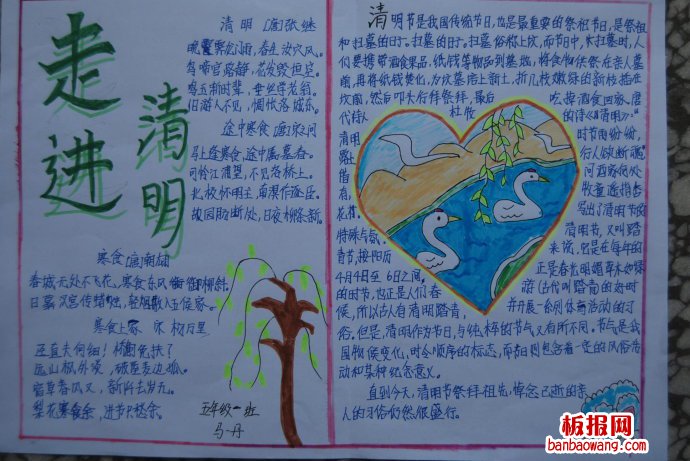 走进清明
清明 [唐]张继
耿耀寒龙浦雨，春生汝穴风。
鸟啼官路静，花发毁垣空。
鸣玉渐时辈，垂丝学老翁。
旧游人不见，惆怅洛城东。
途中寒食 [唐]宋之问
马上逢寒食，途中属暮春。
可怜江浦望，不见洛桥上。
北极怀明主，南溟作逐臣。
故园断处，日夜柳条新。
寒食 [唐]韩翃
春城无处不飞花，寒食东风御柳斜。
日暮汉宫传蜡烛，轻烟散入五侯家。
寒食上冢 宋 杨万里
迳直夫何细！桥危免扶？
远山枫外淡，破屋麦边孤。
宿草春风又，新阡去岁无。
梨花寒食余，进节只愁余。
五年级一班
马一丹
清明节是我国传统节日，也是最重要的祭祖节日，是祭祖
和扫墓的日子。扫墓俗称上坟，而节日中，大扫墓时，人
们要携带酒食果品，纸钱等物品到墓地，将食物供祭在亲人墓
前，再将纸钱焚化，为坟墓培上新土，折几枝嫩绿的新枝插在
坟前，然后叩头行礼祭拜，最后吃掉酒食回家。唐
代诗人杜牧的诗《清明》：“
清明时节雨纷纷，
路上行人欲断魂。
借问酒家何处
有，牧童遥指杏
花村。写出了清明节的
特殊气氛。清明节，又叫踏
青节，按阳历来说，它是在每年的
4月4日至6日之间，正是春光明媚草木吐绿
的时节，也正是人们春游（古代叫踏青）的好时
候，所以古人有清明踏青，并开展一系列体育活动的习
俗。但是，清明作为节日，与纯粹的节气又有所不同。节气是我
国物候变化，时令顺序的标志，而节日则包含着一定的风俗活
动和某种纪念意义。
直到今天，清明节祭拜祖先，悼念已逝的亲
人的习俗仍然很盛行。
板报网
banbaowang.com